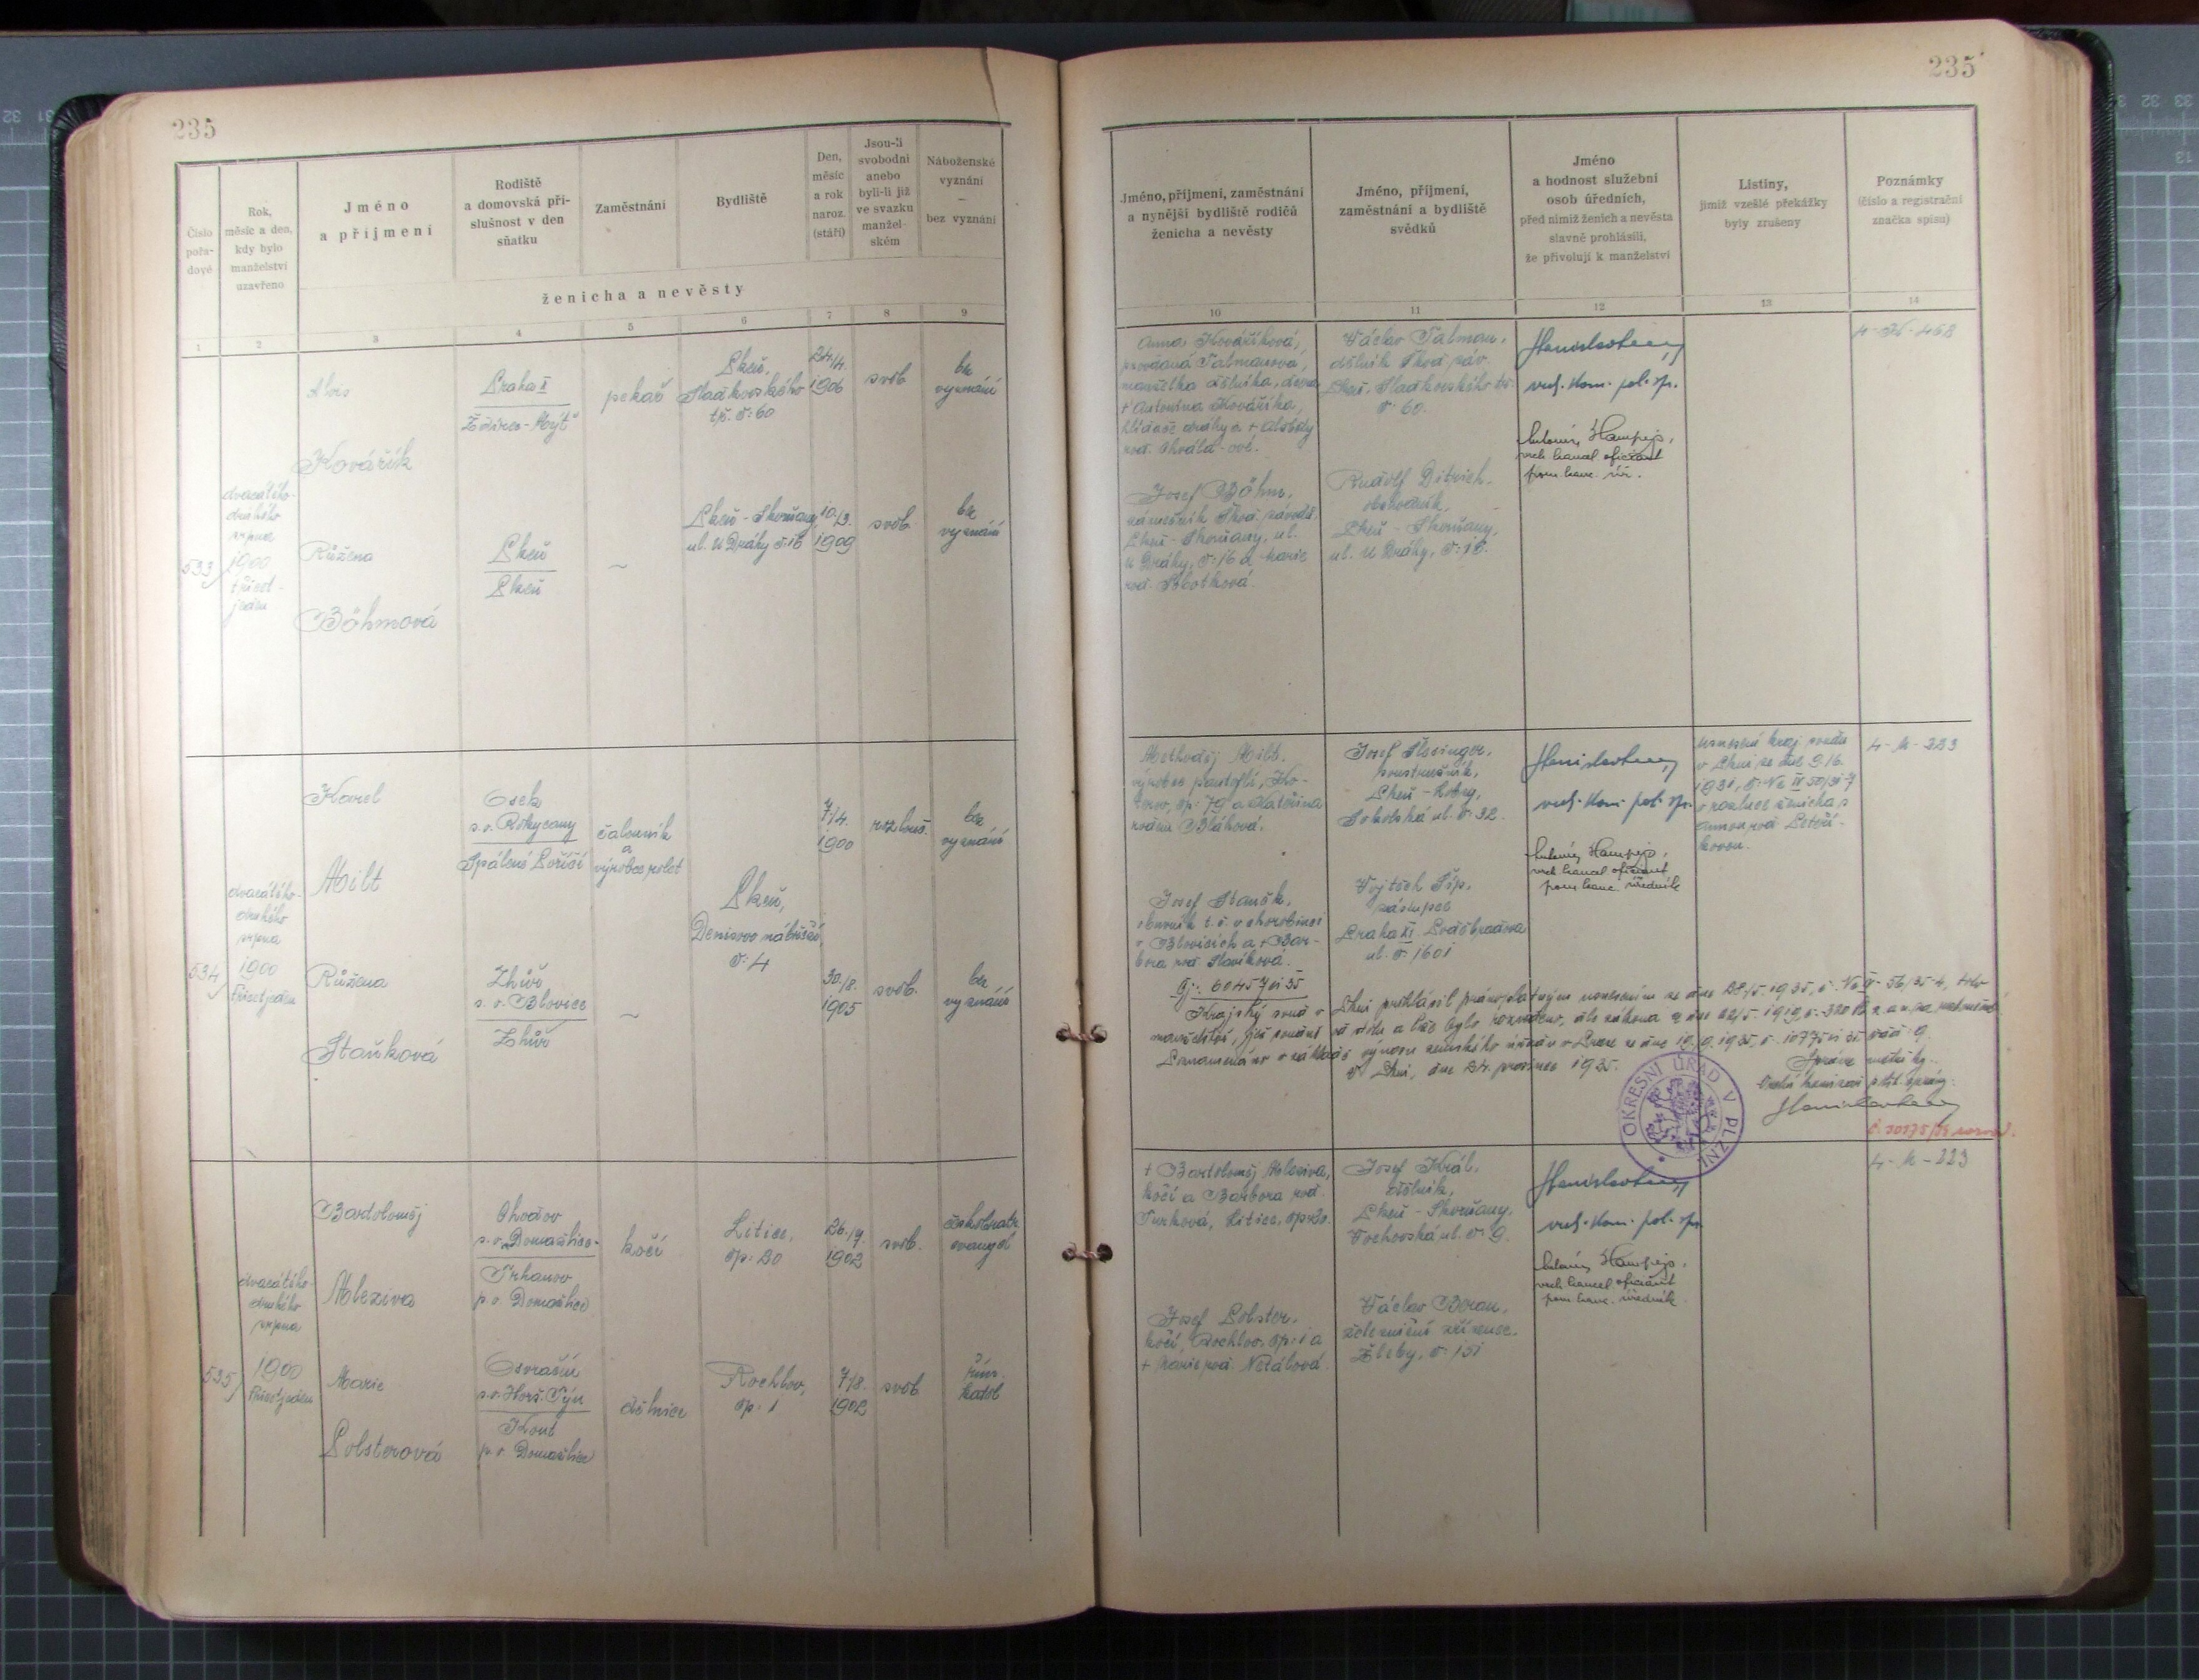 235
235
Číslo
pořa-
dové
Rok,
měsíc a den,
kdy bylo
manželství
uzavřeno
Jméno
a příjmení
Rodiště
a domovská pří-
slušnost v den
sňatku
Zaměstnání
Bydliště
Den,
měsíc
a rok
naroz.
(stáří)
Jsou-li
svobodni
anebo
byli-li již
ve svazku
manžel-
ském
Náboženské
vyznání
–
bez vyznání
ženicha a nevěsty
1 2 3 4 5 6 7 8 9
533
dvacátého-
druhého
srpna
1900
třicet-
jeden
Alois
Kovářík
Praha II
pekař
Plzeň,
Sladkovského
tř. č: 60
24/4.
1906
svob.
bez
vyznání
Růžena
Böhmová
Plzeň
Plzeň
~
Plzeň - Skvrňany,
ul. U Dráhy č: 16
10./3.
1909
svob.
bez
vyznání
534
dvacátého-
druhého
srpna
1900
třicetjeden
Karel
Milt
Osek
s. o. Rokycany
Spálené Poříčí
čalouník
a
výrobce rolet
Plzeň,
Denisovo nábřeží
č: 4
7/4.
1900
rozlouč.
bez
vyznání
Růžena
Staňková
Zhůř
s. o. Blovice
Zhůř
~
30./8.
1905
svob.
bez
vyznání
535
dvacátého-
druhého
srpna
1900
třicetjeden
Bartoloměj
Mleziva
Chodov
s. o. Domažlice-
Trhanov
p. o. Domažlice
kočí
Litice,
čp: 20
26./9.
1902
svob.
českobratr.
evangel
Marie
Lobsterová
Osvračín
s. o. Horš. Týn
Kout
p. o. Domažlice
dělnice
Rochlov,
čp: 1
7/8.
1902
svob
řím.
katol
Jméno, příjmení, zaměstnání
a nynější bydliště rodičů
ženicha a nevěsty
Jméno, příjmení,
zaměstnání a bydliště
svědků
Jméno
a hodnost služební
osob úředních,
před nimiž ženich a nevěsta
slavně prohlásili,
že přivolují k manželství
Listiny,
jimiž vzešlé překážky
byly zrušeny
Poznámky
(číslo a registrační
značka spisu)
10 11 12 13 14
Anna Kovaříková,
provdaná Talmanová,
manželka dělníka, dcera
† Antonína Kováříka,
hlídače dráhy a
rod. Chválat-ové.
Josef Böhm,
zámečník Škod. závodů
Plzeň - Skvrňany, ul.
U Dráhy, č: 16 a Marie
rod.
Václav Talman,
dělník Škod. záv.
Plzeň, Sladkovského tř.
č: 60.
Rudolf Ditrich,
obchodník,
Plzeň - Skvrňany,
ul. U Dráhy, č: 16.
vrch. kom. pol. sp.
Antonín Hampejs,
vrch. kancel. oficiant
pom. kanc. úř.
4-K-468
Methoděj Milt,
výrobce pantoflí, Ko-
čp: 79 a Kateřina
rozená Bláhová.
Josef Staněk,
t. č. v chorobinci
v Blovicích a † Bar-
bora rod. Slavíková.
Josef Schwinger,
Plzeň - Lobzy,
Sokolská ul. č: 32.
Vojtěch Šíp,
zástupce
Praha XI. Poděbradova
ul. č. 1601
vrch. kom. pol. sp.
Antonín Hampejs,
vrch. kancel. oficiant,
pom. kanc. úředník
Usnesení kraj. soudu
v Plzni ze dne 9./6.
1931, č: Nc IV 50/31-7
o rozluce ženicha s
Annou rod.
4-M-223
Čj: 60457 ai 35
Krajský soud v Plzni prohlásil pravoplatným usnesením ze dne 28/5. 1935, č. Nc II - 56/35-4, toto
manželství, jež soudně od stolu a lože bylo rozvedeno, dle zákona ze dne 22/5. 1919, č. 320 Sb. z. a n. za rozloučené.
Poznamenáno v základě výnosu zemského úřadu v Praze ze dne
V Plzni, dne 24. prosince 1935.
Správce matriky:
Vrchní komisař polit. správy:
OKRESNÍ ÚŘAD V PLZNI
† Bartoloměj Mleziva,
kočí a Barbora rod.
Turková, Litice, čp: 20.
Josef Lobster,
kočí, Rochlov, čp: 1 a
† Marie rod.
Josef Král,
dělník,
Plzeň - Skvrňany,
Vochovská ul. č: 9.
Václav Beran,
železniční zřízenec,
č: 151
vrch. kom. pol. sp.
Antonín Hampejs,
vrch. kancel. oficiant
pom. kanc. úředník
4-M-223